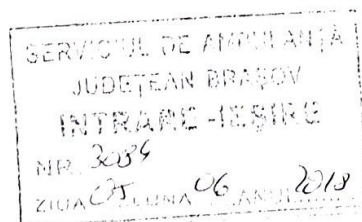 SERVICIUL DE AMBULANȚĂ
JUDEȚEAN BRAȘOV
INTRARE - IEȘIRE
NR. 3084
ZIUA 05 LUNA 06 ANUL 2018